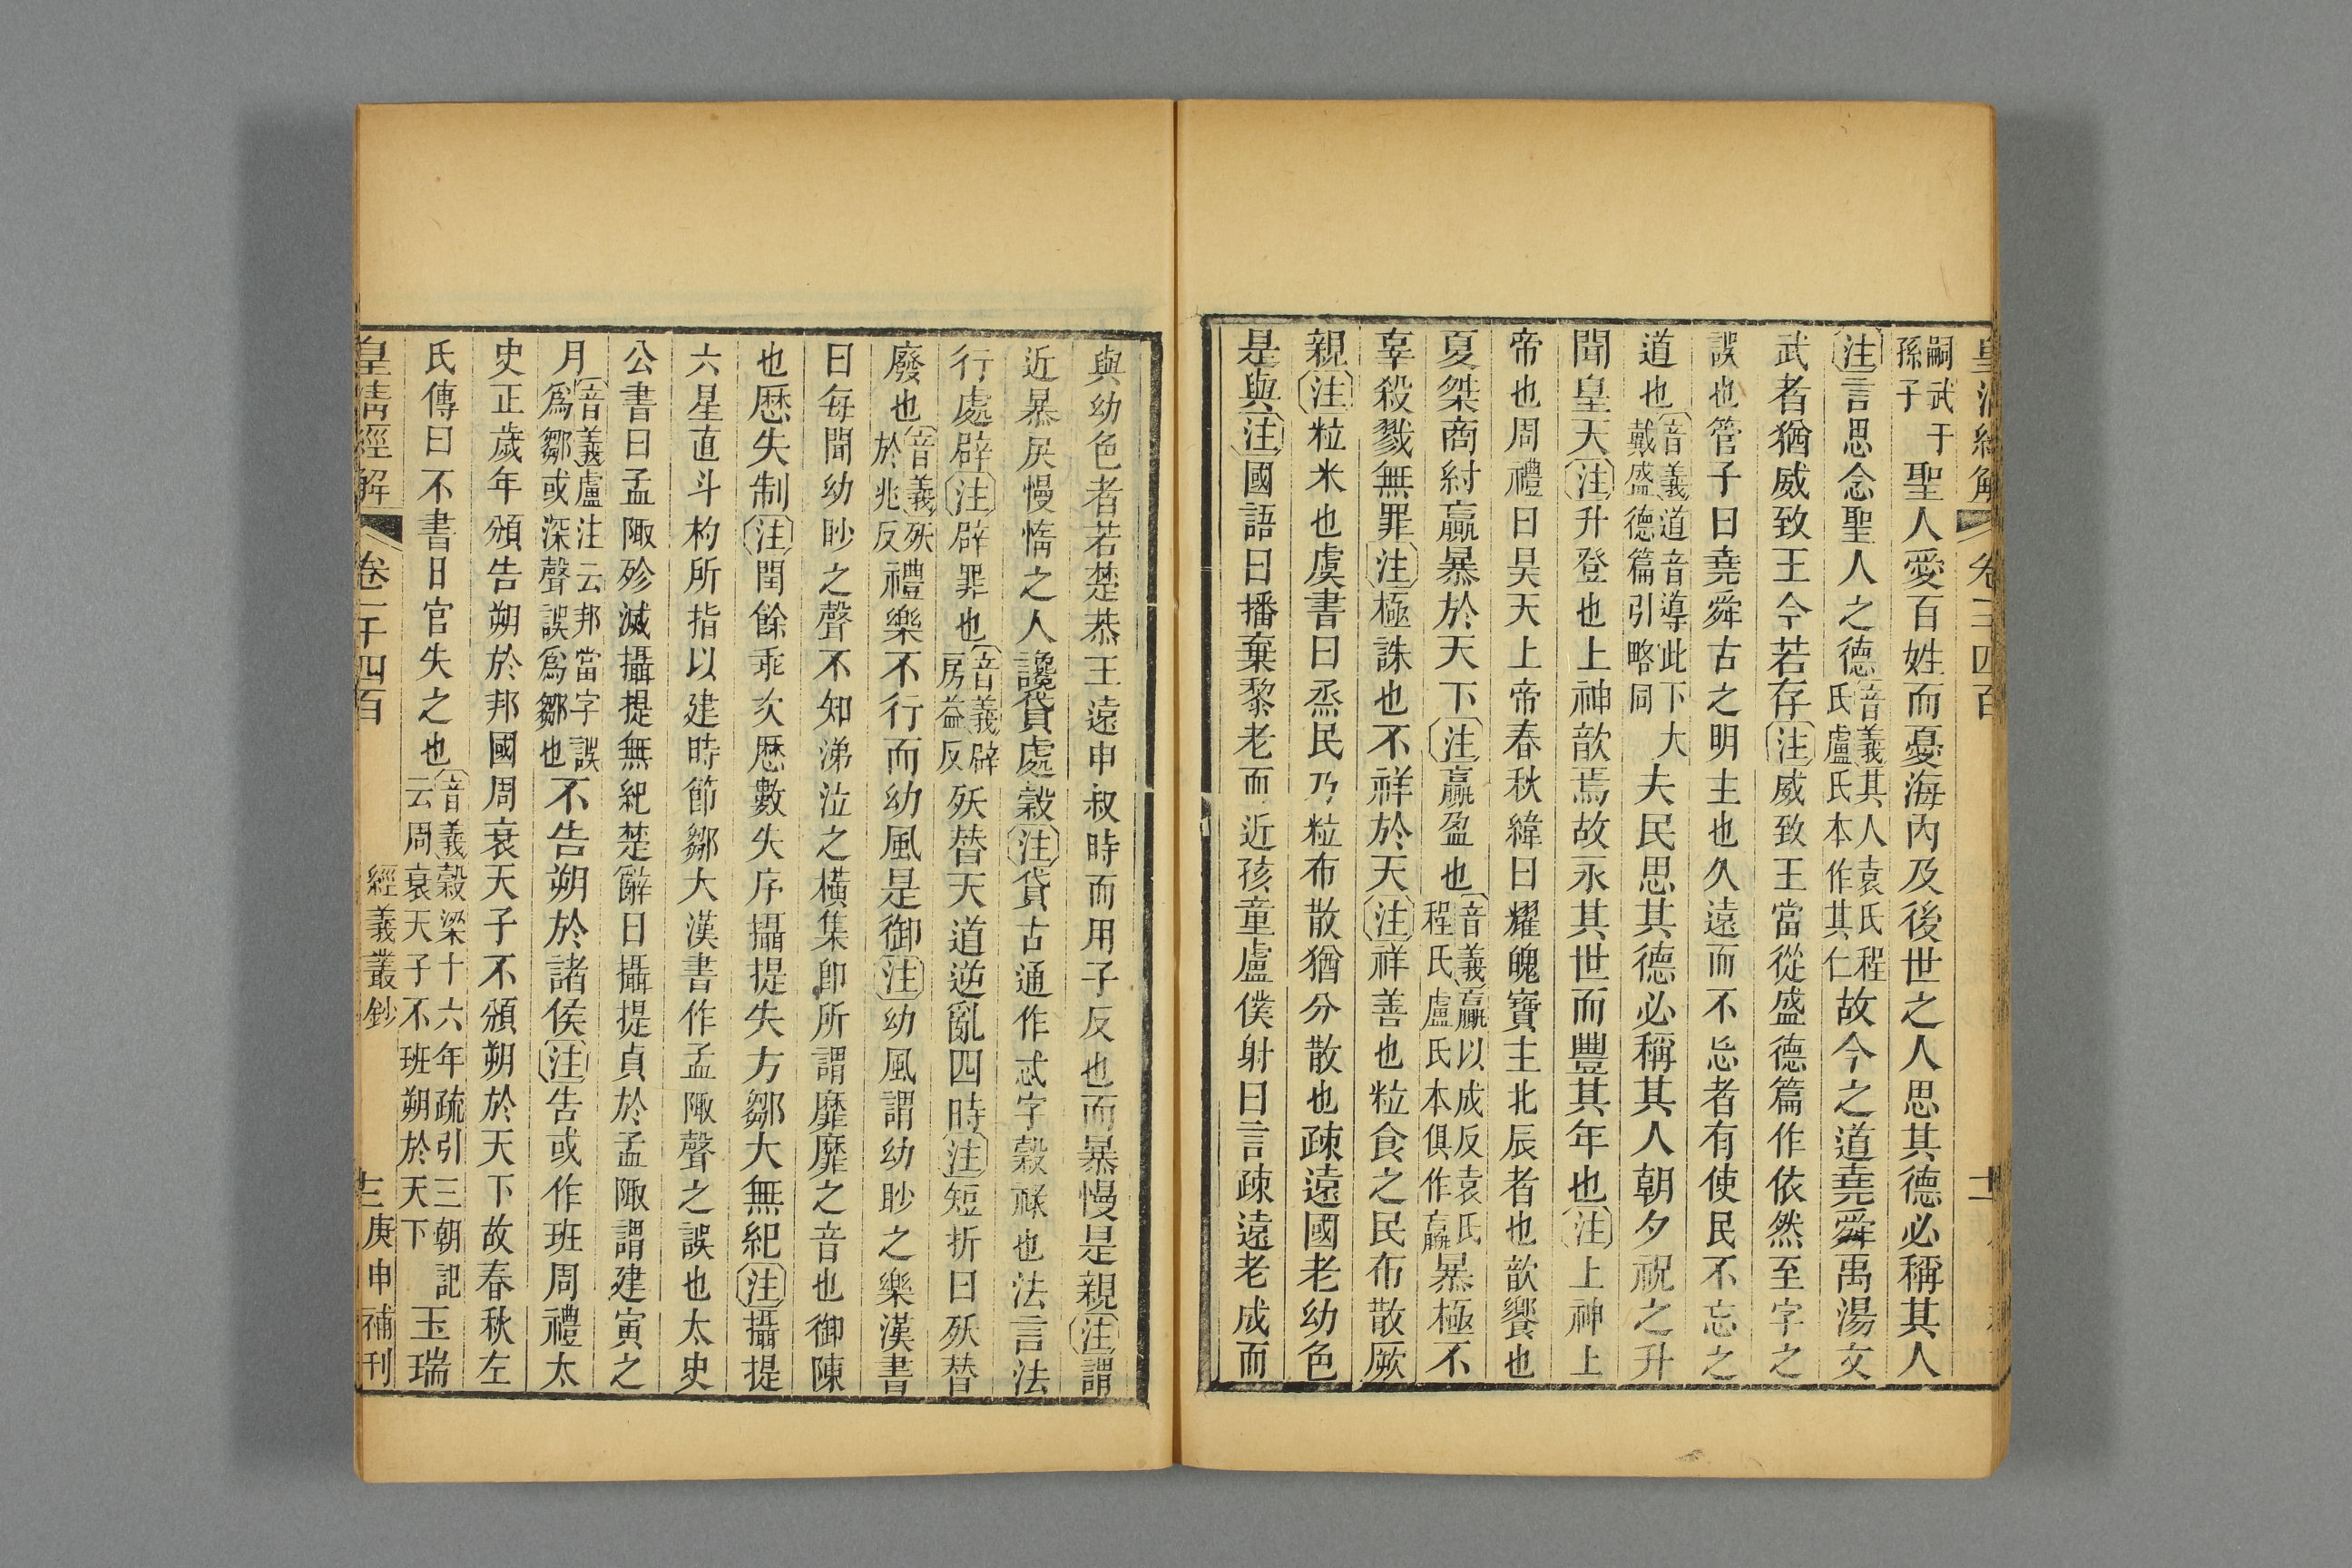 嗣武于孫子聖人愛百姓而憂海内及後世之人思其德必稱其人
注言思念聖人之德音義其人袁氏程氏盧氏本作其仁故今之道堯舜禹湯文
武者猶威致王今若存注威致王當從盛德篇作依然至字之
誤也管子曰堯舜古之明主也久遠而不忘者有使民不忘之
道也音義道音導此下大戴盛德篇引略同夫民思其德必稱其人朝夕祝之升
聞皇天注升登也上神歆焉故永其世而豐其年也注上神上
帝也周禮曰昊天上帝春秋緯曰耀魄寶主北辰者也歆饗也
夏桀商紂羸暴於天下注羸盈也音義羸以成反袁氏程氏盧氏本俱作嬴暴極不
辜殺戮無罪注極誅也不祥於天注祥善也粒食之民布散厥
親注粒米也虞書曰烝民乃粒布散猶分散也疎遠國老幼色
是與注國語曰播棄黎老而近孩童盧僕射曰言疎遠老成而
皇清經解 卷一千四百
與幼色者若楚恭王遠申叔時而用子反也而暴慢是親注謂
近暴戾慢惰之人讒貸處穀注貸古通作忒字穀祿也法言法
行處辟注辟罪也音義辟房益反殀替天道逆亂四時注短折曰殀替
廢也音義殀於兆反禮樂不行而幼風是御注幼風謂幼眇之樂漢書
曰每聞幼眇之聲不知涕泣之橫集即所謂靡靡之音也御陳
也歴失制注閏餘乖次歴數失序攝提失方鄒大無紀注攝提
六星直斗杓所指以建時節鄒大漢書作孟陬聲之誤也太史
公書曰孟陬殄滅攝提無紀楚辭曰攝提貞於孟陬謂建寅之
月音義盧注云邦當字誤爲鄒或深聲誤爲鄒也不告朔於諸侯注告或作班周禮太
史正歲年頒告朔於邦國周衰天子不頒朔於天下故春秋左
氏傳曰不書日官失之也音義穀梁十六年疏引三朝記云周衰天子不班朔於天下玉瑞
皇清經解 卷一千四百 經義叢鈔 庚申補刊